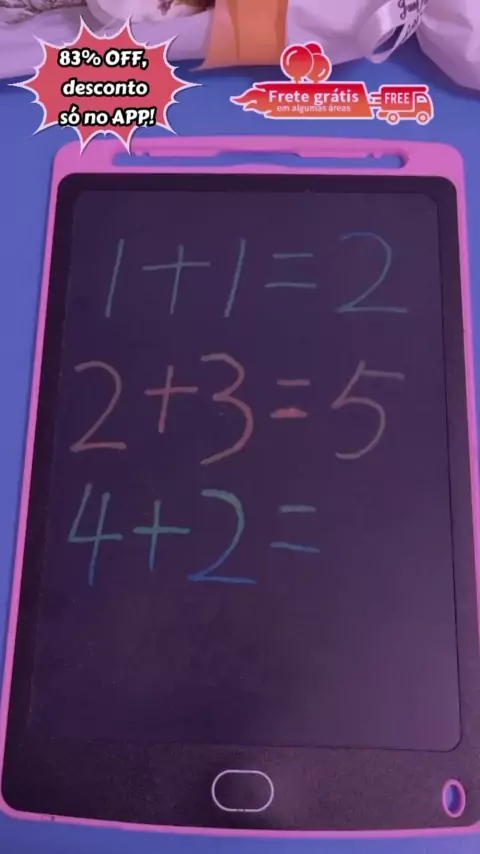 83% OFF,
desconto
só no APP!
Frete grátis
em algumas áreas
FREE
1+1=2
2+3=5
4+2=